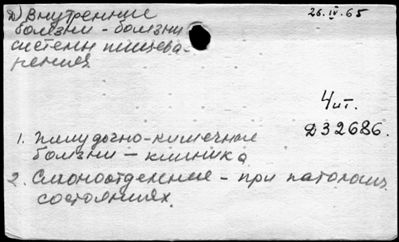 д) Внутренние 26.IV.65
болезни - болезни
системы пищева-
рения
Чит.
Д32686.
1. Желудочно-кишечные
болезни — клиника
2. Слюноотделение - при патолог.
состояниях.